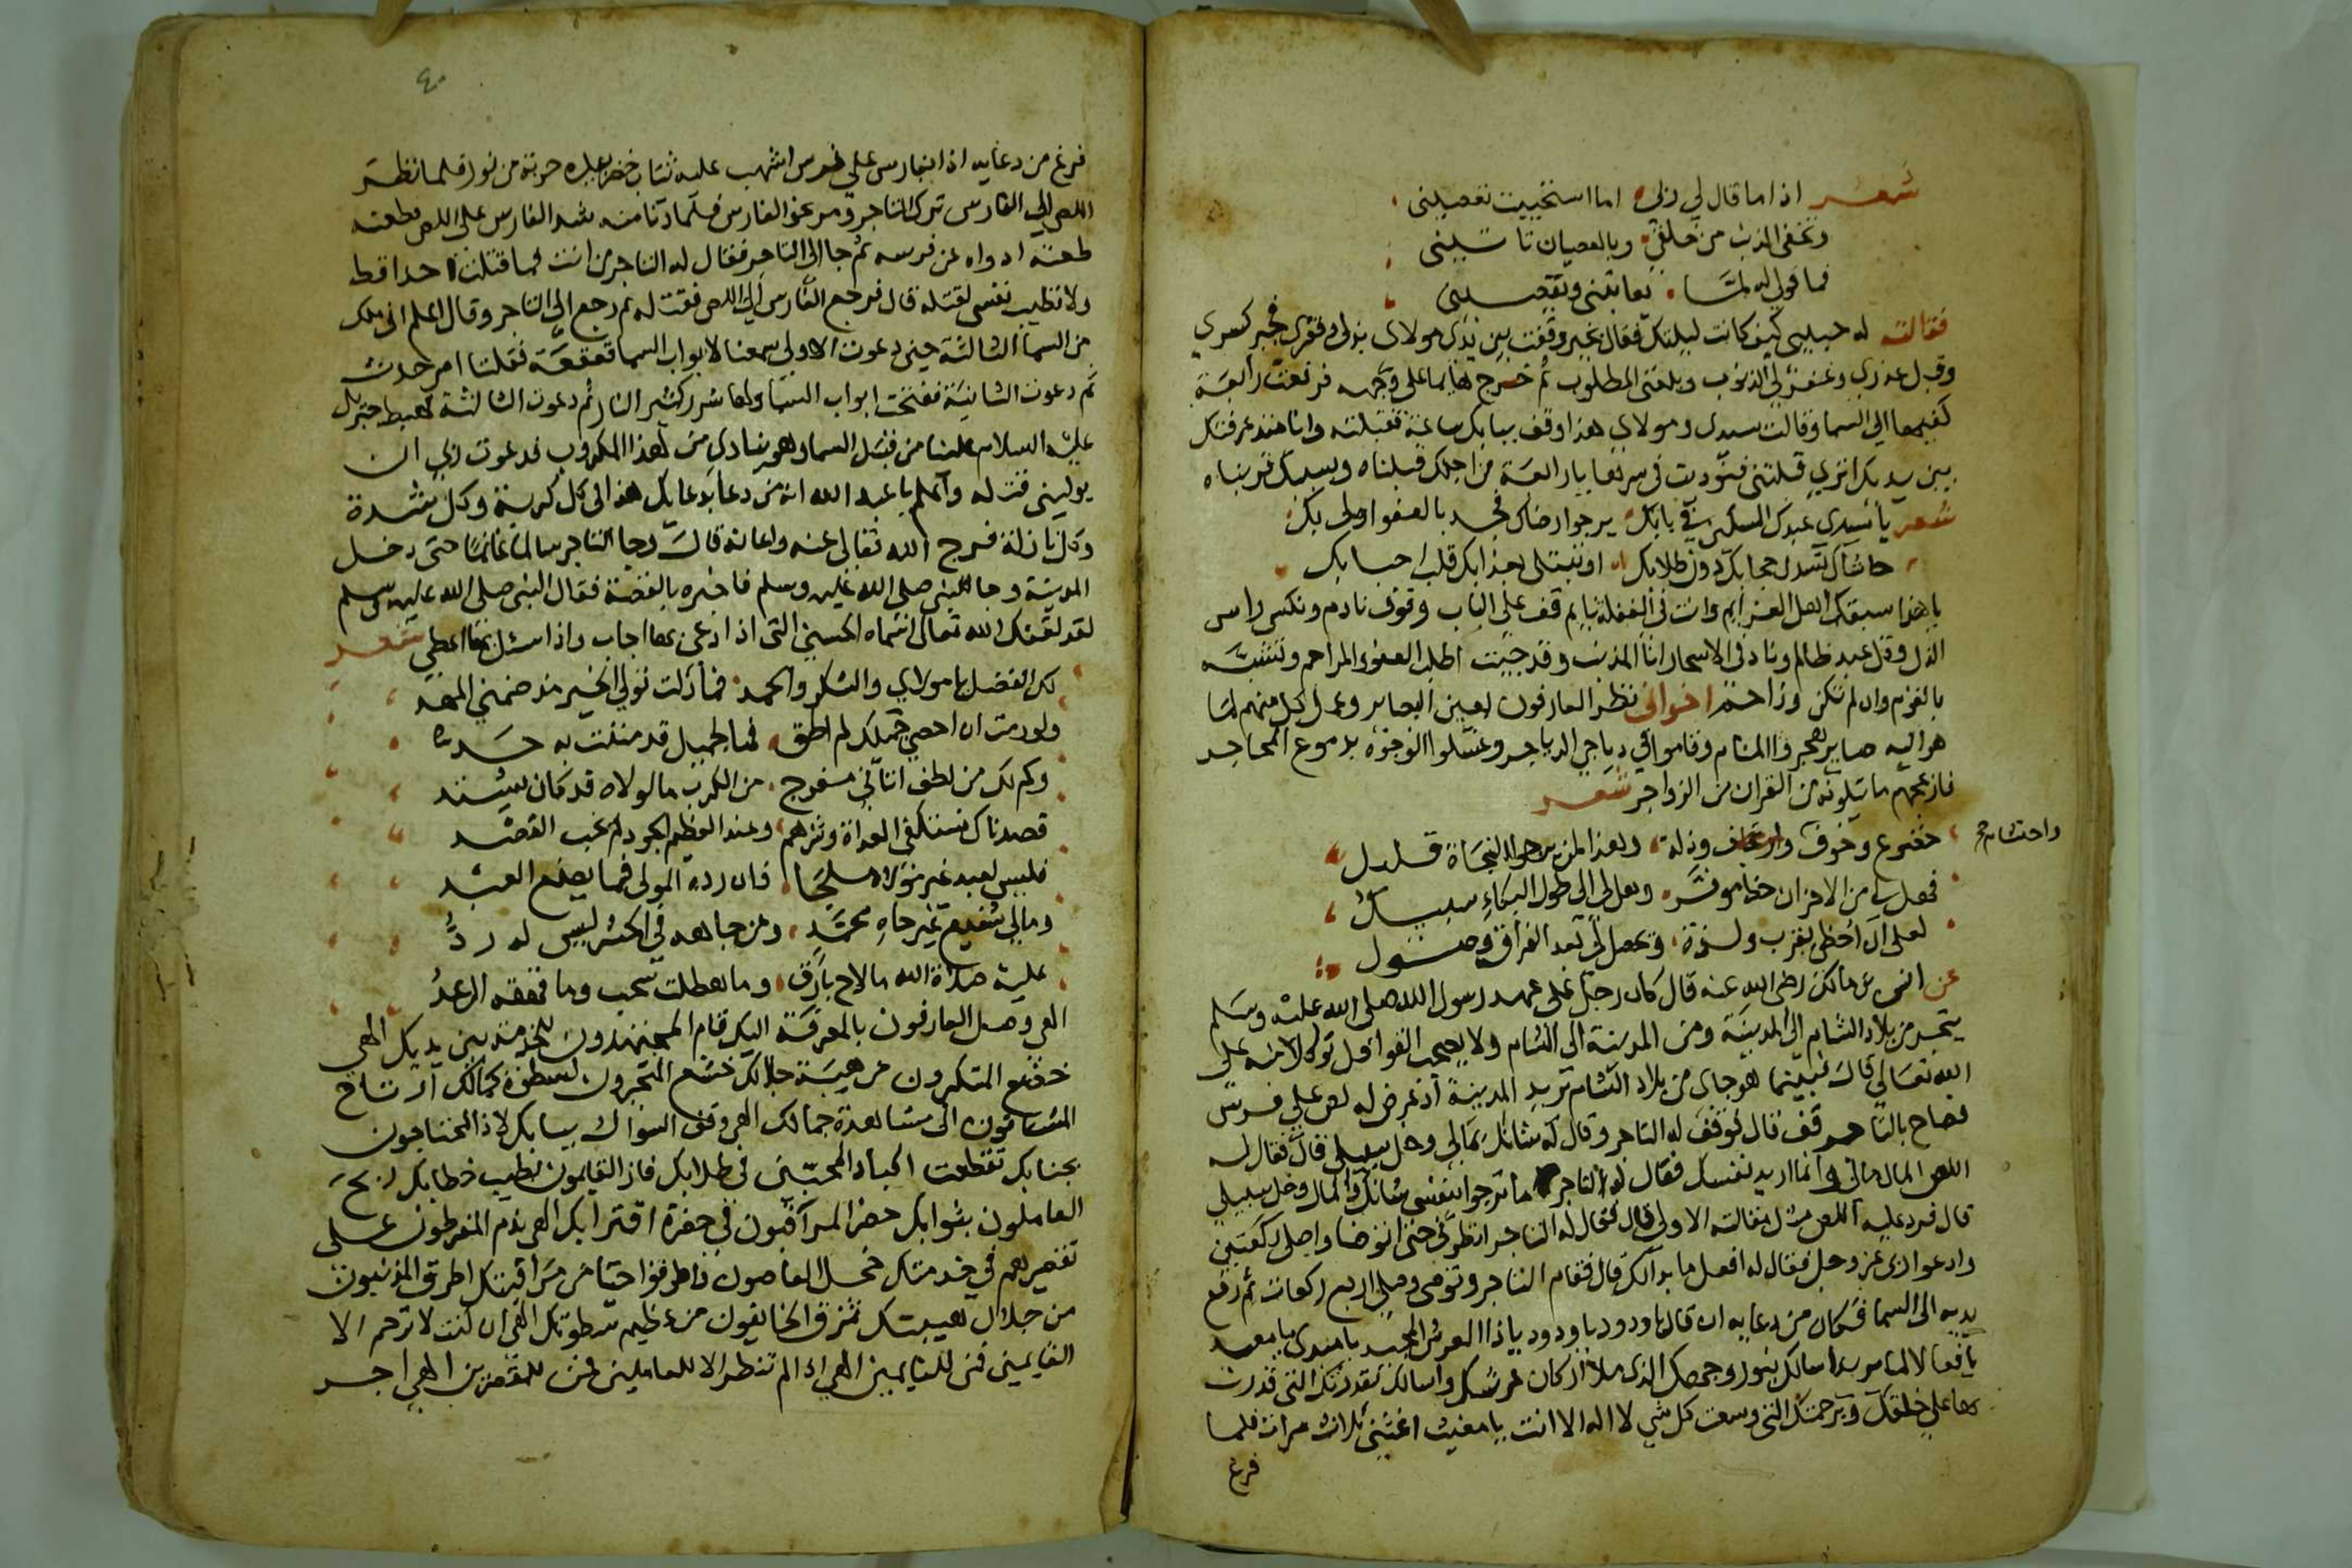 شعر اذا ما قال لي ربي اما استحييت تعصيني
وتخفي الذنب من خلقي وبالعصيان تاتيني
فما قولي له لما يعاتبني ويقصيني
فقالت له حبيبي كيف كانت ليلتك فقال بخير وقفت بين يدي مولاي بذلي وفقري فجبر كسري
وقبل عذري وغفر لي الذنوب وبلغني المطلوب ثم خرج هايما على وجهه فرفعت رابعة
كفيها الي السما وقالت سيدي ومولاي هذا وقف ببابك ساعة فقبلته وانا منذ عرفتك
بين يديك اتري قبلتني فنوديت في سرها يا رابعة من اجلك قبلناه وبسببك قربناه
شعر يا سيدي عبدك المسكين في بابك يرجوا رضاك فجد بالعفو اولى بك
حاشاك تسدل حجابك دون طلابك او تبتلى بعذابك قلب احبابك
يا هذا سبقك اهل العزايم وانت في الغفلة نايم قف على الباب وقوف نادم ونكس راس
الذل وقل عبد ظالم وناد في الاسحار انا المذنب وقد جيت اطلب العفو والمراحم وتشبه
بالقوم وان لم تكن وزاحم اخواني نظر العارفون بعين البصاير وعمل كل منهم لما
هو اليه صاير هجروا المنام وقاموا في دياجي الدياجر وغسلوا الوجوه بدموع المحاجر
فازعجهم ما يتلونه من القران من الزواجر شعر
خضوع وخوف وارتجاف وذلة وهذا لمن يرجوا النجاة قليل
واحتشام صح
فهل لي من الاحزان خدا موفر وهل لي الى طول البكاء سبيل
لعلى ان احظى بقرب ولذة ويحصل لي بعد الفراق وصول
عن انس بن مالك رضى الله عنه قال كان رجل على عهد رسول الله صلى الله عليه وسلم
يتجر من بلاد الشام الى المدينة ومن المدينة الى الشام ولا يصحب القوافل توكلا منه على
الله تعالى قال فبينما هو جاى من بلاد الشام تريد المدينة اذ عرض له لص على فرس
فصاح بالتاجر قف قال فوقف له التاجر وقال له شانك بمالي وخل سبيلي قال فقال له
اللص المال مالي وانما اريد نفسك فقال له التاجر ما ترجوا بنفسي شانك والمال وخل سبيلي
قال فرد عليه اللص مثل مقالته الاولى قال فقال له التاجر انظرني حتى اتوضا واصلي ركعتين
وادعوا ربي عز وجل فقال له افعل ما بدا لك قال فقام التاجر وتوضى وصلي اربع ركعات ثم رفع
يديه الى السما فكان من دعايه ان قال يا ودود يا ودود يا ذا العرش المجيد يا مبدى يا معيد
يا فعالا لما يريد اسالك بنور وجهك الذي ملا اركان عرشك واسالك بقدرتك التي قدرت
بها على خلقك وبرحمتك التي وسعت كل شي لا اله الا انت يا مغيث اغثني ثلاث مرات فلما
فرغ
٤٠
فرغ من دعايه اذا بفارس علي فرس اشهب عليه ثياب خضر بيده حربة من نور فلما نظر
اللص الي الفارس ترك التاجر ومر نحو الفارس فلما دنا منه شد الفارس على اللص فطعنه
طعنة ارداه عن فرسه ثم جا الى التاجر فقال له التاجر من انت فما قتلت احدا قط
ولا تطيب نفسي لقتله قال فرجع الفارس الي اللص فقتله ثم رجع الى التاجر وقال اعلم اني ملك
من السما الثالثة حين دعوت الاولي سمعنا لابواب السما قعقعة فقلنا امر حدث
ثم دعوت الثانية ففتحت ابواب السما ولها شرر كشرر النار ثم دعوت الثالثة فهبط جبريل
عليه السلام علينا من قبل السما وهو ينادي من لهذا المكروب فدعوت ربي ان
يوليني قتله واعلم يا عبد الله انه من دعا بدعايك هذا في كل كربة وكل شدة
وكل نازلة فرج الله تعالى عنه واعانه قال وجا التاجر سالما غانما حتى دخل
المدينة وجا للنبي صلى الله عليه وسلم فاخبره بالقصة فقال النبي صلى الله عليه وسلم
لقد لقنك الله تعالى اسماه الحسنى التي اذا دعى بها اجاب واذا سئل بها اعطى شعر
لك الفضل يا مولاي والشكر والحمد فما زلت تولي الخير مذ ضمني المهد
ولو رمت ان احصي جميلك لم اطق فما لجميل قد مننت به حد
وكم لك من لطف اتاني مفرج من الكرب ما لولاه قد كان يشتد
قصدناك نستكفى العداة وشرهم وعند العظيم الجود لم يخب القصد
فليس لعبد غير مولاه ملجا فان رده المولى فما يصنع العبد
ومالي شفيع غير جاه محمد ومن جاهه في الحشر ليس له رد
عليه صلاة الله ما لاح بارق وما هطلت سحب وما قهقه الرعد
الهي وصل العارفون بالمعرفة اليك قام المجتهدون للخدمة بين يديك الهي
خضع المتكبرون من هيبة جلالك خشع المتجبرون لسطوة كمالك ارتاح
المشتاقون الى مشاهدة جمالك الهي وقف السوال ببابك لاذ المحتاجون
بجنابك تقطعت اكباد المحبين في طلابك فاز القايمون بطيب خطابك ربح
العاملون بثوابك حضر المراقبون في حضرة اقترابك الهي ندم المفرطون على
تقصيرهم في خدمتك خجل العاصون فاطرقوا حيا من مراقبتك اطرق المذنبون
من جلال هيبتك تمزق الخايفون من عظيم سطوتك الهي ان كنت لا ترحم الا
القايمين فمن للنايمين الهي اذا لم تنظر الا للعاملين فمن للمقصرين الهي اجر